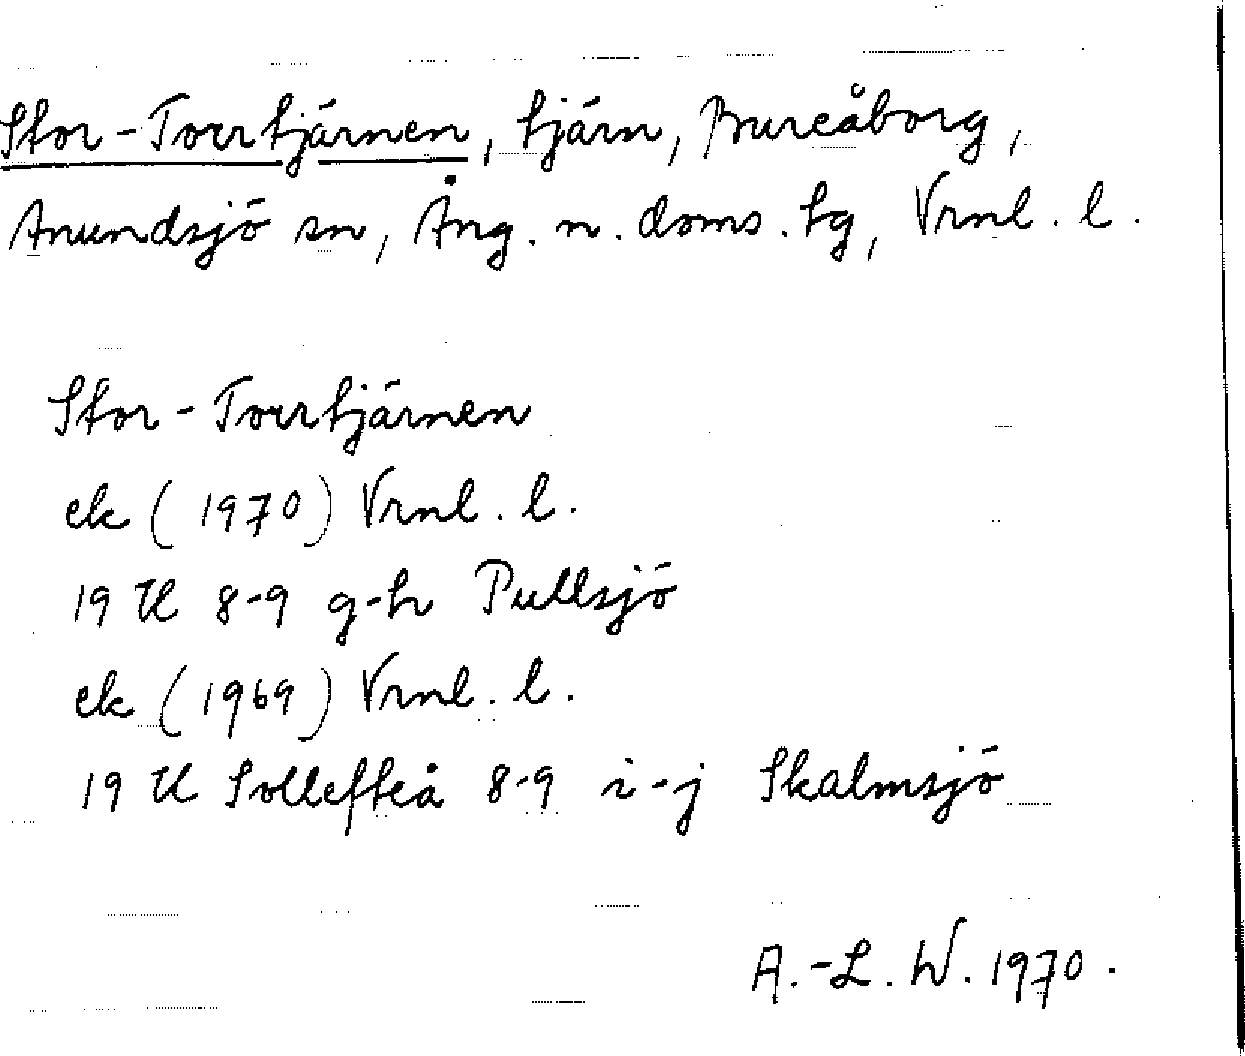 Stor-Torrtjärnen, tjärn, Bureåborg,
Anundsjö sn, Ång. n. doms. tg, Vrnl. l.
Stor-Torrtjärnen
ek (1970) Vrnl. l.
19 H 8-9 g-h Pullsjö
ek (1969) Vrnl. l.
19 H Sollefteå 8-9 i-j Skalmsjö
A.-L. W. 1970.